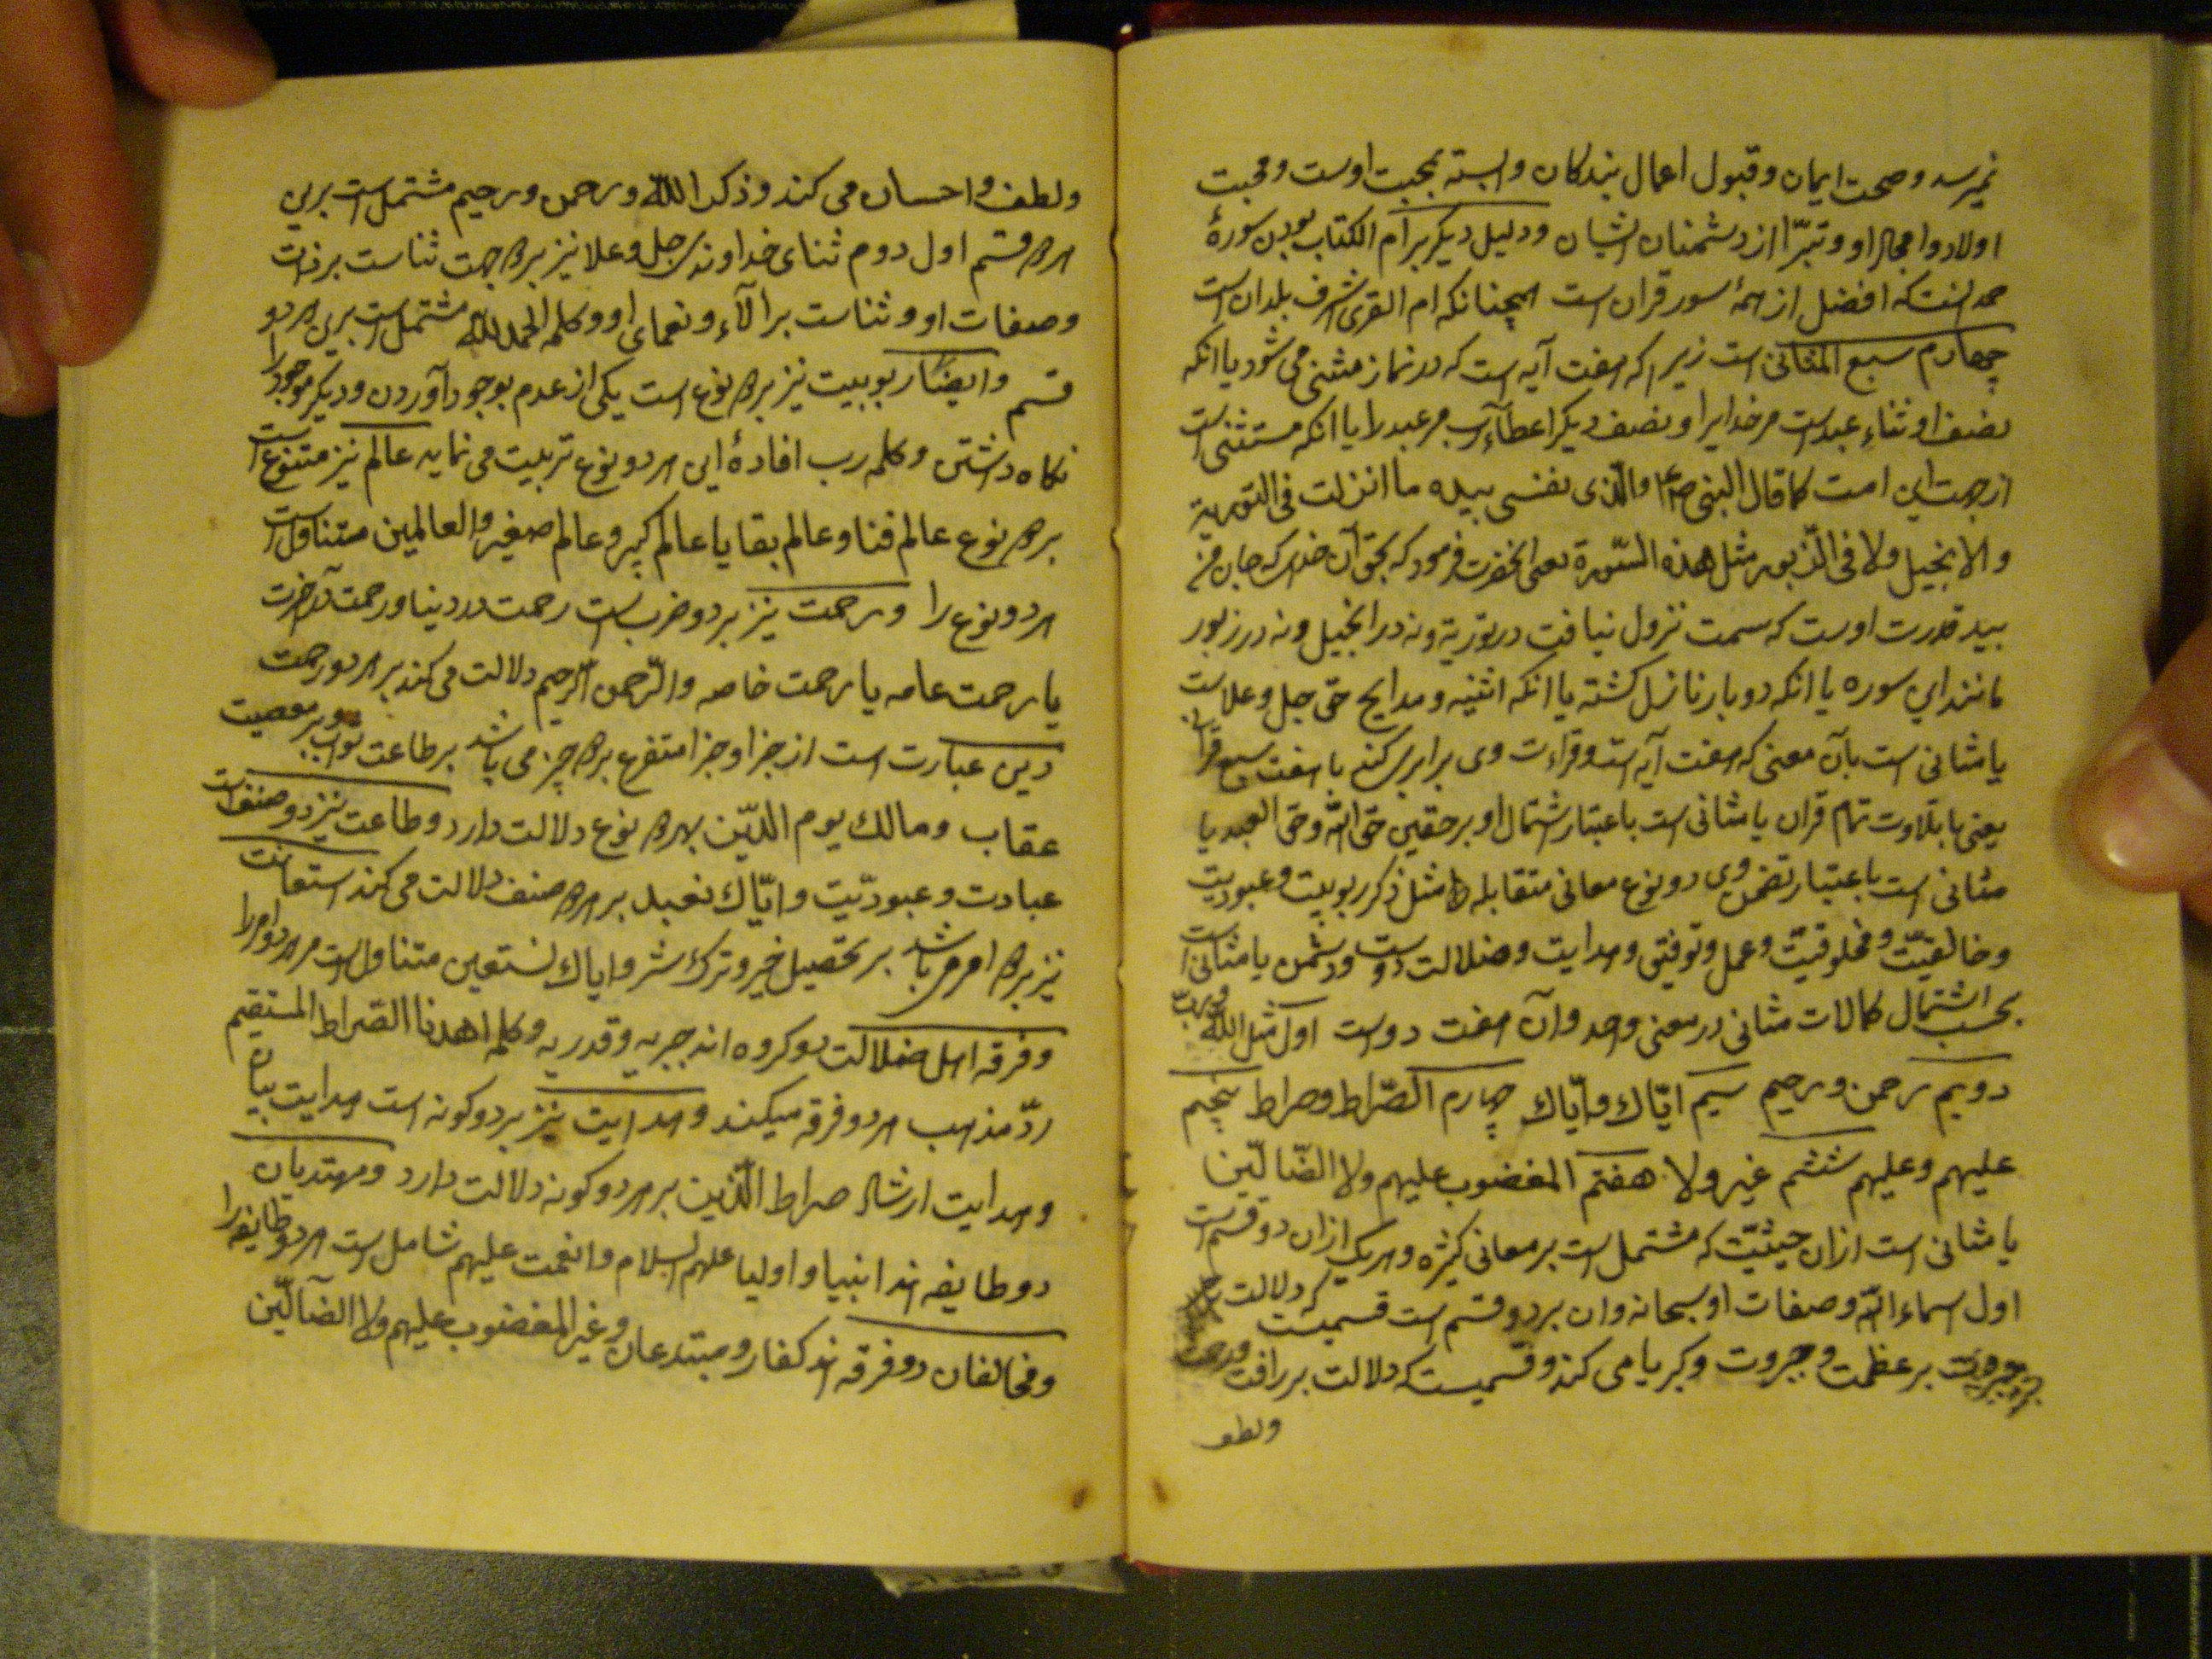 نمیرسد و صحت ایمان و قبول اعمال بندکان وابسته بمحبت اوست و محبت
اولاد و امجاد او و تبرّا از دشمنان ایشان و دلیل دیکر برام الکتاب بودن سورهٔ
حمد انست که افضل از همهٔ سور قران است همچنانکه ام القری اشرف بلدان است
چهارم سبع المثانی است زیرا که هفت آیه است که در نماز مثنی می شود یا انکه
نصف او ثناء عبد است مر خدایرا و نصف دیکر اعطاء رب مر عبد را یا انکه مستثنی است
از جهت این امت کما قال النبی صلعم والّذی نفسی بیده ما انزلت فی التوریة
والانجیل ولا فی الزّبور مثل هذه السّورة یعنی انحضرت فرمود که بحق آن خدای که جان من
بید قدرت اوست که سمت نزول نیافت در توریة و نه در انجیل و نه در زبور
مانند این سوره یا انکه دو بار نازل کشته یا انکه اثنیه و مدایح حق جل و علا است
یا مثانی است بآن معنی که هفت آیه است و قراءت وی برابری کند با هفت سبع قران
یعنی با تلاوت تمام قران یا مثانی است باعتبار اشتمال او بر حقین حق اللّه و حق العبد یا
مثانی است باعتبار تضمن وی دو نوع معانی متقابله را مثل ذکر ربوبیت و عبودیت
و خالقیّت و مخلوقیّت و عمل و توفیق و هدایت و ضلالت دوست و دشمن یا مثانی است
بحسب اشتمال کمالات مثانی در معنی واحد و آن هفت دوست اول مثل اللّه و رب
دویم رحمن و رحیم سیم ایّاك و ایّاك چهارم الصّراط و صراط پنجم
علیهم و علیهم ششم غیر و لا هفتم المغضوب علیهم ولا الضّالّین
یا مثانی است ازان حیثیّت که مشتمل است بر معانی کثیره و هریك ازان دو قسم است
اول اسماء اللّه و صفات او سبحانه و ان بر دو قسم است قسمیست که دلالت
بر عظمت و جبروت و کبریا می کند و قسمیست که دلالت بر رافت و رحمت
و لطف
و لطف و احسان می کند و ذکر اللّه و رحمن و رحیم مشتمل است برین
هر دو قسم اول دوم ثنای خداوند جل و علا نیز بر دو جهت ثناست بر ذات
و صفات او و ثناست بر الآء و نعمای او و کلمه الحمد للّه مشتمل است برین هر دو
قسم و ایضًا ربوبیت نیز بر دو نوع است یکی از عدم بوجود آوردن و دیکر موجود را
نکاه داشتن و کلمه رب افادهٔ این هر دو نوع تربیت می نماید عالم نیز متنوع است
بر دو نوع عالم فنا و عالم بقا یا عالم کبیر و عالم صغیر و العالمین متناول است
هر دو نوع را و رحمت نیز بر دو ضرب است رحمت در دنیا و رحمت در آخرت
یا رحمت عامه یا رحمت خاصه و الرّحمن الرّحیم دلالت می کند بر هر دو رحمت
دین عبارت است از جزا و جزا متفرع بر دو چیز می باشد بر طاعت ثواب و بر معصیت
عقاب و مالك یوم الدّین بهر دو نوع دلالت دارد و طاعت نیز دو صنف است
عبادت و عبودیّت و ایّاك نعبد بر هر دو صنف دلالت می کند استعانت
نیز بر دو امر می باشد بر تحصیل خیر و ترك شر و ایاك نستعین متناول است مر هر دو امر را
و فرقه اهل ضلالت دو کروه اند جبریه و قدریه و کلمه اهدنا الصّراط المستقیم
ردّ مذهب هر دو فرقه میکند و هدایت نیز بر دو کونه است هدایت بیان
و هدایت ارشاد صراط الّذین بر هر دو کونه دلالت دارد و مهتدیان
دو طایفه اند انبیا و اولیا علیهم السلام و انعمت علیهم شامل است هر دو طایفه را
و مخالفان دو فرقه اند کفار و مبتدعان و غیر المغضوب علیهم ولا الضآلّین